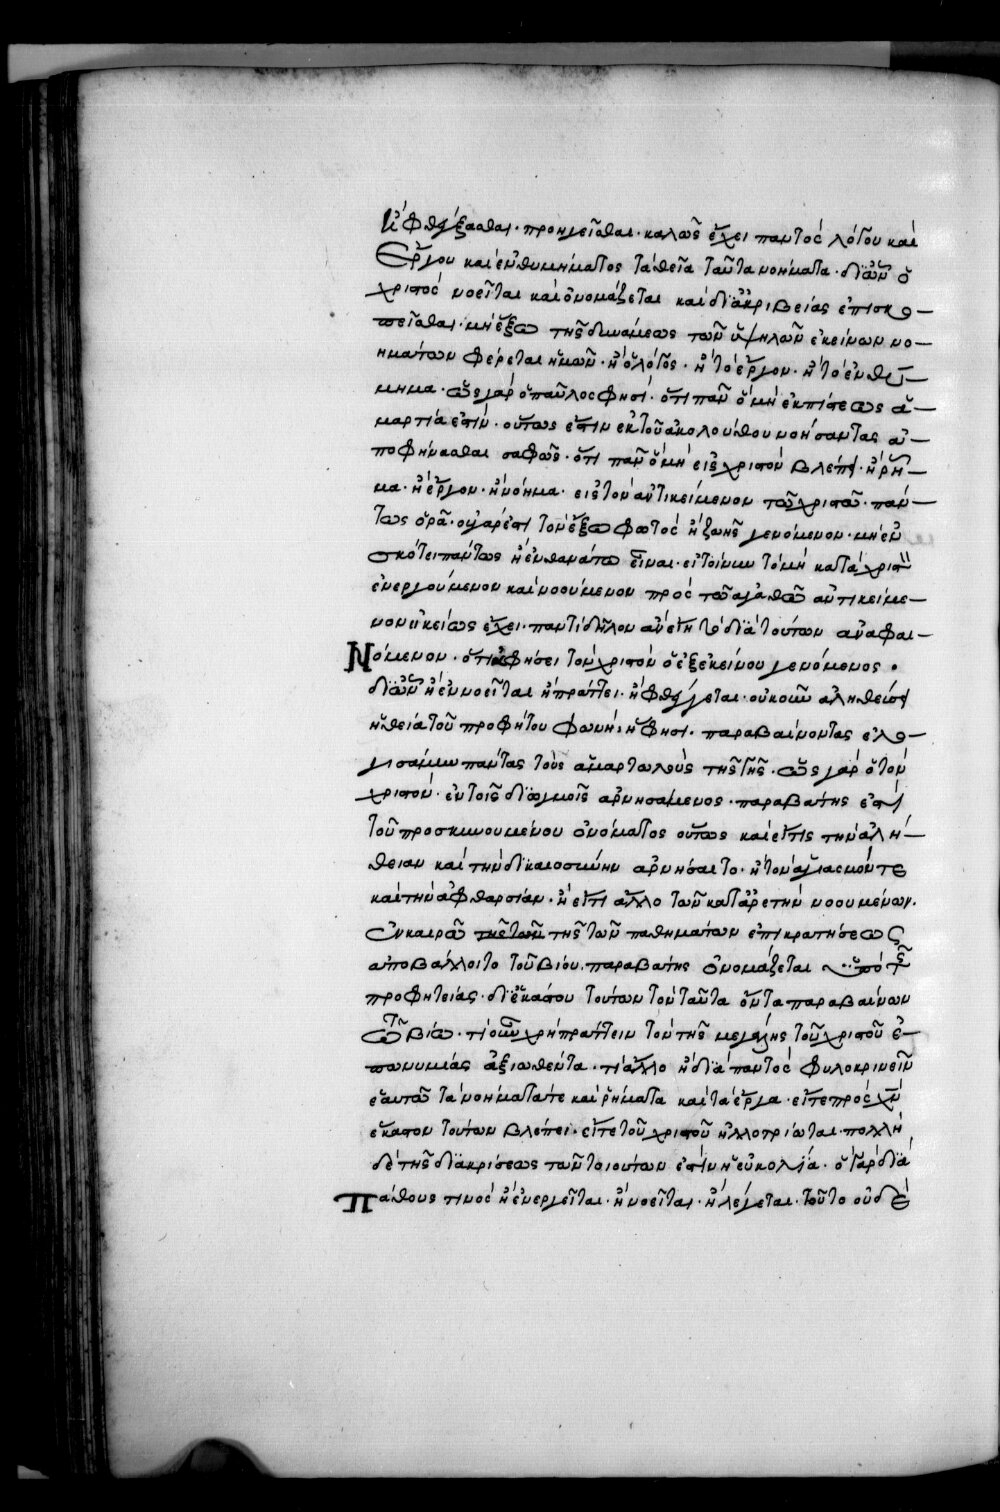 ἢ φθέγξασθαι· προηγεῖσθαι· καλῶς ἔχει παντὸς λόγου καὶ
ἔργου καὶ ἐνθυμήματος τὰ θεῖα ταῦτα νοήματα· δι' ὧν ὁ
χριστὸς νοεῖται καὶ ὀνομάζεται καὶ δι' ἀκριβείας ἐπισκο-
πεῖσθαι· μὴ ἔξω τῆς δυνάμεως τῶν ὑψηλῶν ἐκείνων νο-
ημάτων φέρεται ἡμῶν· ἢ ὁ λόγος· ἢ τὸ ἔργον· ἢ τὸ ἐνθύ-
μημα· ὡς γὰρ ὁ παῦλος φησί· ὅτι πᾶν ὃ μὴ ἐκ πίστεως ἁ-
μαρτία ἐστίν· οὕτως ἔστιν ἐκ τοῦ ἀκολούθου νοήσαντας ἀ-
ποφήνασθαι σαφῶς· ὅτι πᾶν ὃ μὴ εἰς χριστὸν βλέπει· ἢ ῥῆ-
μα· ἢ ἔργον· ἢ νόημα· εἰς τὸν ἀντικείμενον τῷ χριστῷ· πάν-
τως ὁρᾷ· οὐ γάρ ἐστι τὸν ἔξω φωτὸς ἢ ζωῆς γενόμενον· μὴ ἐν
σκότει πάντως ἢ ἐν θανάτῳ εἶναι· εἰ τοίνυν τὸ μὴ κατὰ χριστὸν
ἐνεργούμενον καὶ νοούμενον πρὸς τῷ ἀγαθῷ ἀντικείμε-
νον οἰκείως ἔχει· παντὶ δῆλον ἂν εἴη τὸ διὰ τούτων ἀναφαι-
Νόμενον· ὅτι ἀφήσει τὸν χριστὸν ὁ ἐξ ἐκείνου γενόμενος·
δι' ὧν ἢ ἐννοεῖται ἢ πράττει· ἢ φθέγγεται· οὐκοῦν ἀληθεύει
ἡ θεία τοῦ προφήτου φωνή· ἥ φησι· παραβαίνοντας ἐλο-
γισάμην πάντας τοὺς ἁμαρτωλοὺς τῆς γῆς· ὡς γὰρ ὁ τὸν
χριστὸν· ἐν τοῖς διωγμοῖς ἀρνησάμενος· παραβάτης ἐστὶ
τοῦ προσκυνουμένου ὀνόματος οὕτως καὶ εἴ τις τὴν ἀλή-
θειαν καὶ τὴν δικαιοσύνην ἀρνήσαιτο· ἢ τὸν ἁγιασμόν τε
καὶ τὴν ἀφθαρσίαν· ἢ εἴ τι ἄλλο τῶν κατ' ἀρετὴν νοουμένων·
ἐν καιρῷ τῆς τῶν τῆς τῶν παθημάτων ἐπικρατήσεως
ἀποβάλλοιτο τοῦ βίου· παραβάτης ὀνομάζεται ὑπὸ τῆς
προφητείας· δι' ἑκάστου τούτων τὸν ταῦτα ὄντα παραβαίνων
τῷ βίῳ· τί οὖν χρὴ πράττειν τὸν τῆς μεγάλης τοῦ χριστοῦ ἐ-
πωνυμίας ἀξιωθέντα· τί ἄλλο ἢ διὰ παντὸς φυλοκρινεῖν
ἑαυτῷ τὰ νοήματά τε καὶ ῥήματα καὶ τὰ ἔργα· εἴτε πρὸς χν
ἕκαστον τούτων βλέπει· εἴτε τοῦ χριστοῦ ἠλλοτρίωται· πολλὴ
δὲ τῆς διακρίσεως τῶν τοιούτων ἐστὶν ἡ εὐκολία· ὃ γὰρ διὰ
Πάθους τινὸς ἢ ἐνεργεῖται· ἢ νοεῖται· ἢ λέγεται· τοῦτο οὐδὲ